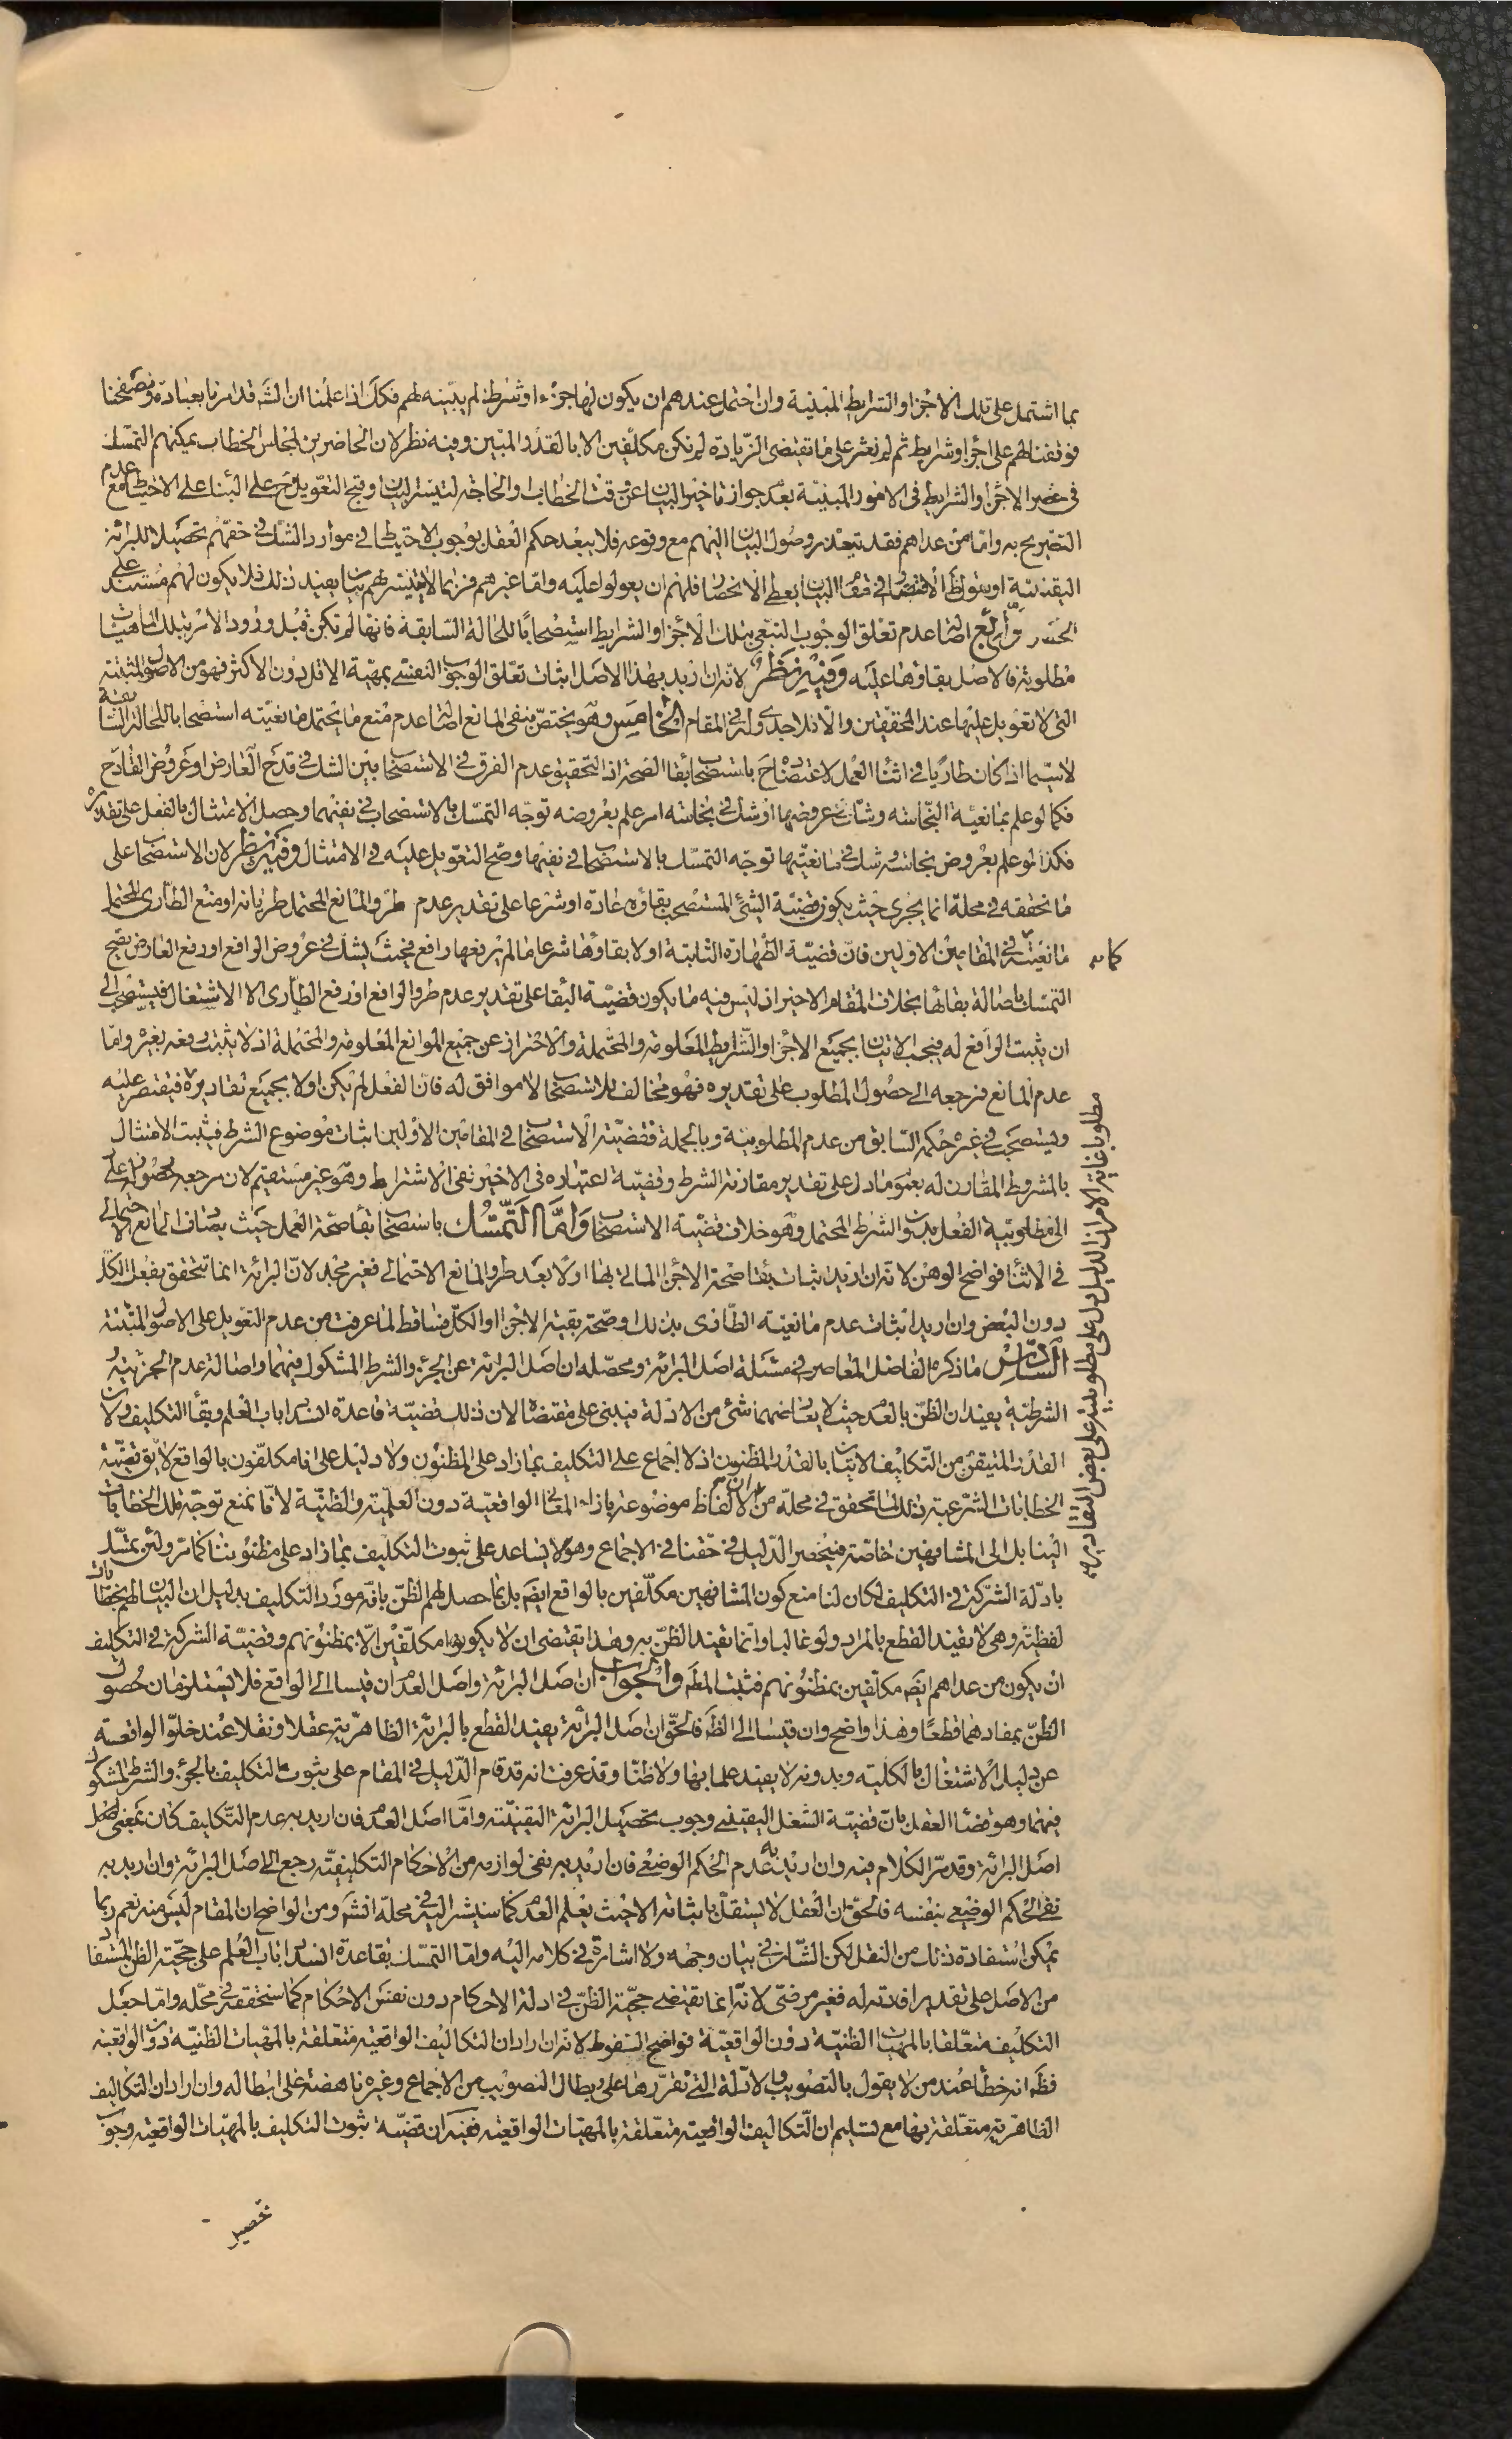 بما اشتمل على تلك الاجزاء والشرايط المبنية وان احتمل عندهم ان يكون لها جزء او شرط لم يبينه لهم فكك اذا علمنا ان الشه قد امرنا بعبادة وتصفحنا
فوقفنا لهم على اجزاء وشرايط ثم لم نعثر على ما تقتضى الزيادة لم نكن مكلفين الا بالقدر المبين وفيه نظر لان الحاضرين لمجلس الخطاب يمكنهم التمسك
فى حصر الاجزاء والشرايط فى الامور المبنية بعدم جواز تاخير البيان عن وقت الخطاب او الحاجة لتيسر البيان وقبح التعويل ح على البناء على الاحتياط مع عدم
التصريح به واما من عداهم فقد يتعذر وصول البيان اليهم مع وقوعه فلا يبعد حكم العقل بوجوب الاحتياط فى موارد الشك فى حقهم تحصيلا للبرائة
اليقينية او بقول ظ الاقتصار فى مقام البيان يعطى الانحصار فلهم ان يعولوا عليه واما غيرهم فربما لا يتيسر لهم بيان يفيد ذلك فلا يكون لهم مستند على
الحصر الرابع اصالة عدم تعلق الوجوب التبعى بتلك الاجزاء والشرايط استصحابا للحالة السابقة فانها لم تكن قبل ورود الامر بتلك الماهيات
مطلوبة فالاصل بقاؤها عليه وفيه نظر لانه ان اريد بهذا الاصل اثبات تعلق الوجوب النفسى بمهية الاقل دون الاكثر فهو من الاصول المثبتة
التى لا تعويل عليها عند المحققين والا فلا جدوى له فى المقام الخامس وهو يختص بنفى المانع اصالة عدم منع ما يحتمل مانعيته استصحابا للحالة السابقة
لا سيما اذا كان طاريا فى اثناء العمل لاعتضاده ح باستصحاب بقاء الصحة اذ التحقيق عدم الفرق فى الاستصحاب بين الشك فى قدح العارض او عروض القادح
فكما لو علم بمانعية النجاسة وشك فى عروضها او شك فى نجاسة امر علم بعروضه توجه التمسك بالاستصحاب فى نفيهما وحصل الامتثال بالفعل على تقديره
فكذا لو علم بعروض نجاسة وشك فى مانعيتها توجه التمسك بالاستصحاب فى نفيها وصح التعويل عليه فى الامتثال وفيه نظر لان الاستصحاب على
ما نحققه فى محله انما يجرى حيث يكون قضية الشئ المستصحب بقاؤه عادة او شرعا على تقدير عدم طرو المانع المحتمل طريانه او منع الطارى المحتمل
مانعيته كما فى المقامين الاولين فان قضية الطهارة الثابتة اولا بقاؤها شرعا ما لم يرفعها رافع فحيث يشك فى عروض الرافع او رفع العارض يصح
التمسك باصالة بقائها بخلاف المقام الاخير اذ ليس فيه ما يكون قضية البقاء على تقدير عدم طرو الرافع او رفع الطارى الا الاشتغال فيستصحب الى
ان يثبت الرافع له فيجب الاتيان بجميع الاجزاء والشرايط المعلومة والمحتملة والاحتراز عن جميع الموانع المعلومة والمحتملة اذ لا يثبت رفعه بغيره واما
عدم المانع فمرجعه الى حصول المطلوب على تقديره فهو مخالف للاستصحاب لا موافق له فان الفعل لم يكن اولا بجميع تقاديره مطلوبا غاية الامر ان الدليل دل على مطلوبيته على بعض التقادير فيقتصر عليه
ويستصحب فى غيره حكمه السابق من عدم المطلوبية وبالجملة فقضية الاستصحاب فى المقامين الاولين اثبات موضوع الشرط فيثبت الامتثال
بالمشروط المقارن له بعموم ما دل على تقدير مقارنة الشرط وقضية اعتباره فى الاخير نفى الاشتراط وهو غير مستقيم لان مرجعه بحصوله على
الى مطلوبية الفعل بدون الشرط المحتمل وهو خلاف قضية الاستصحاب واما التمسك باستصحاب بقاء صحة العمل حيث يصادف المانع الاحتمالى
فى الاثناء فواضح الوهن لانه ان اريد اثبات بقاء صحة الاجزاء الماتى بها اولا بعد طرو المانع الاحتمالى فغير مجد لان البرائة انما تتحقق بفعل الكل
دون البعض وان اريد اثبات عدم مانعية الطارى بذلك او صحة بقية الاجزاء او الكل فساقط لما عرفت من عدم التعويل على الاصول المثبتة
السادس ما ذكره الفاضل المعاصر فى مسئلة اصل البرائة ومحصله ان اصل البرائة عن الجزء والشرط المشكول فيهما واصالة عدم الجزئية و
الشرطية يفيدان الظن بالعدم حيث لا يعارضهما شئ من الادلة فيبنى على مقتضاه لان ذلك قضية قاعدة انسداد باب العلم وبقاء التكليف ولان
القدر المتيقن من التكليف الاتيان بالقدر المظنون اذ لا اجماع على التكليف بما زاد على المظنون ولا دليل على انا مكلفون بالواقع لا يق قضية
الخطابات الشرعية ذلك لما تحقق فى محله من ان الالفاظ موضوعة بازاء المعانى الواقعية دون العلمية والظنية لانا نمنع توجه تلك الخطابات
الينا بل الى المشافهين خاصة فينحصر الدليل فى حقنا فى الاجماع وهو لا يساعد على ثبوت التكليف بما زاد على مظنوننا كما مر ولئن تمسك
بادلة الشركة فى التكليف لكان لنا منع كون المشافهين مكلفين بالواقع ايض بل بما حصل لهم الظن بانه مورد التكليف بدليل ان البيان لهم بخطابات
لفظية وهى لا يفيد القطع بالمراد ولو غالبا وانما يفيد الظن به وهذا يقتضى ان لا يكونوا مكلفين الا بمظنونهم وقضية الشركة فى التكليف
ان يكون من عداهم ايض مكلفين بمظنونهم فثبت المط والجواب ان اصل البرائة واصل العدم ان قيسا الى الواقع فلا يستلزمان حصول
الظن بمفادهما قطعا وهذا واضح وان قيسا الى الظ فالحق ان اصل البرائة يفيد القطع بالبرائة الظاهرية عقلا ونقلا عند خلو الواقعة
عن دليل الاشتغال بالكلية وبدونه لا يفيد علما بها ولا ظنا وقد عرفت انه قد قام الدليل فى المقام على ثبوت التكليف بالجزء والشرط المشكوك
فيهما وهو قضاء العقل بان قضية الشغل اليقينى وجوب تحصيل البرائة اليقينية واما اصل العدم فان اريد به عدم التكليف كان بمعنى
اصل البرائة وقد مر الكلام فيه وان اريد به عدم الحكم الوضعى فان اريد به نفى لوازمه من الاحكام التكليفية رجع الى اصل البرائة وان اريد به
نفى الحكم الوضعى بنفسه فالحق ان العقل لا يستقل باثباته الا حيث يعلم العدم كما سنشير اليه فى محله انشه ومن الواضح ان المقام ليس منه نعم ربما
يمكن استفادة ذلك من النقل لكن الشان فى بيان وجهه ولا اشارة فى كلامه اليه واما التمسك بقاعدة انسداد باب العلم على حجية الظن المستفاد
من الاصل على تقدير افادته له فغير مرضى لانه انما يقتضى حجية الظن فى ادلة الاحكام دون نفس الاحكام كما سنحققه فى محله واما جعل
التكليف متعلقا بالمهيات الظنية دون الواقعية فواضح السقوط لانه ان اراد ان التكاليف الواقعية متعلقة بالمهيات الظنية دون الواقعية
فظ انه خطاء عند من لا يقول بالتصويب والادلة التى تقررها على ابطال التصويب من الاجماع وغيره ناهضة على ابطاله وان اراد ان التكاليف
الظاهرية متعلقة بها مع تسليم ان التكاليف الواقعية متعلقة بالمهيات الواقعية ففيه ان قضية ثبوت التكليف بالمهيات الواقعية وجوب
تحصيل